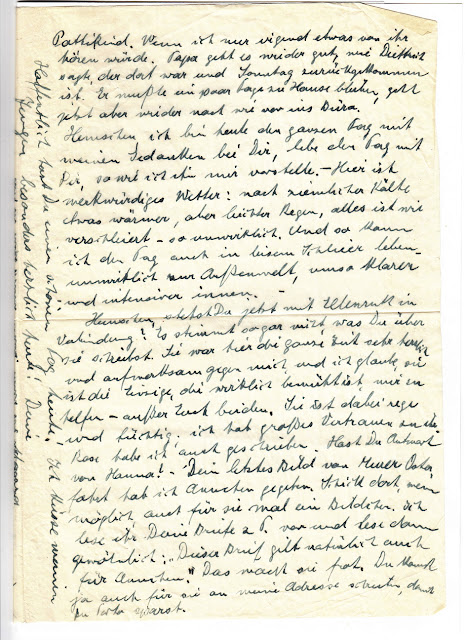 Pattikind. Wenn ich nur irgend etwas von ihr
hören würde. Papa geht es wieder gut, wie Dietherit
sagte, der dort war und Sonntag zurückgekommen
ist. Er mußte ein paar Tage zu Hause bleiben, geht
jetzt aber wieder nach wie vor ins Büro.
Hemschen, ich bin heute den ganzen Tag mit
meinen Gedanken bei Dir, lebe den Tag mit
Dir, so wie ich ihn mir vorstelle. – Hier ist
merkwürdiges Wetter: nach ziemlicher Kälte
etwas wärmer, aber leichter Regen, alles ist wie
verschleiert – so unwirklich. Und so kann
ich den Tag auch in leisem Schleier leben –
unwirklich zur Außenwelt, umso klarer
und intensiver innen. –
Hemschen, stehst Du jetzt mit Ellenruth in
Verbindung? Es stimmt sogar nicht was Du über
sie schreibst. Sie war hier die ganze Zeit sehr
und aufmerksam gegen mich und ich glaube, sie
ist die Einzige, die wirklich bemüht ist, mir zu
helfen – außer Euch beiden. Sie ist dabei rege
und tüchtig, ich hab großes Vertrauen zu ihr.
Rose habe ich auch geschrieben. Hast Du Antwort
von Hanna? – Dein letztes Bild von Eurer
fahrt hab ich Annchen gegeben. Schick doch, wenn
möglich auch für sie mal ein Bildchen. Ich
lese ihr Deine Briefe z. T. vor und lese dann
gewöhnlich: "Dieser Brief gilt natürlich auch
für Annchen." Das macht sie froh. Du kannst
ja auch für sie an meine Adresse schreiben, damit
Du Porto sparst.
Hoffentlich hast Du einen schönen Tag heute. Ich küsse meinen
Jungen besonders herzlich heute! Deine